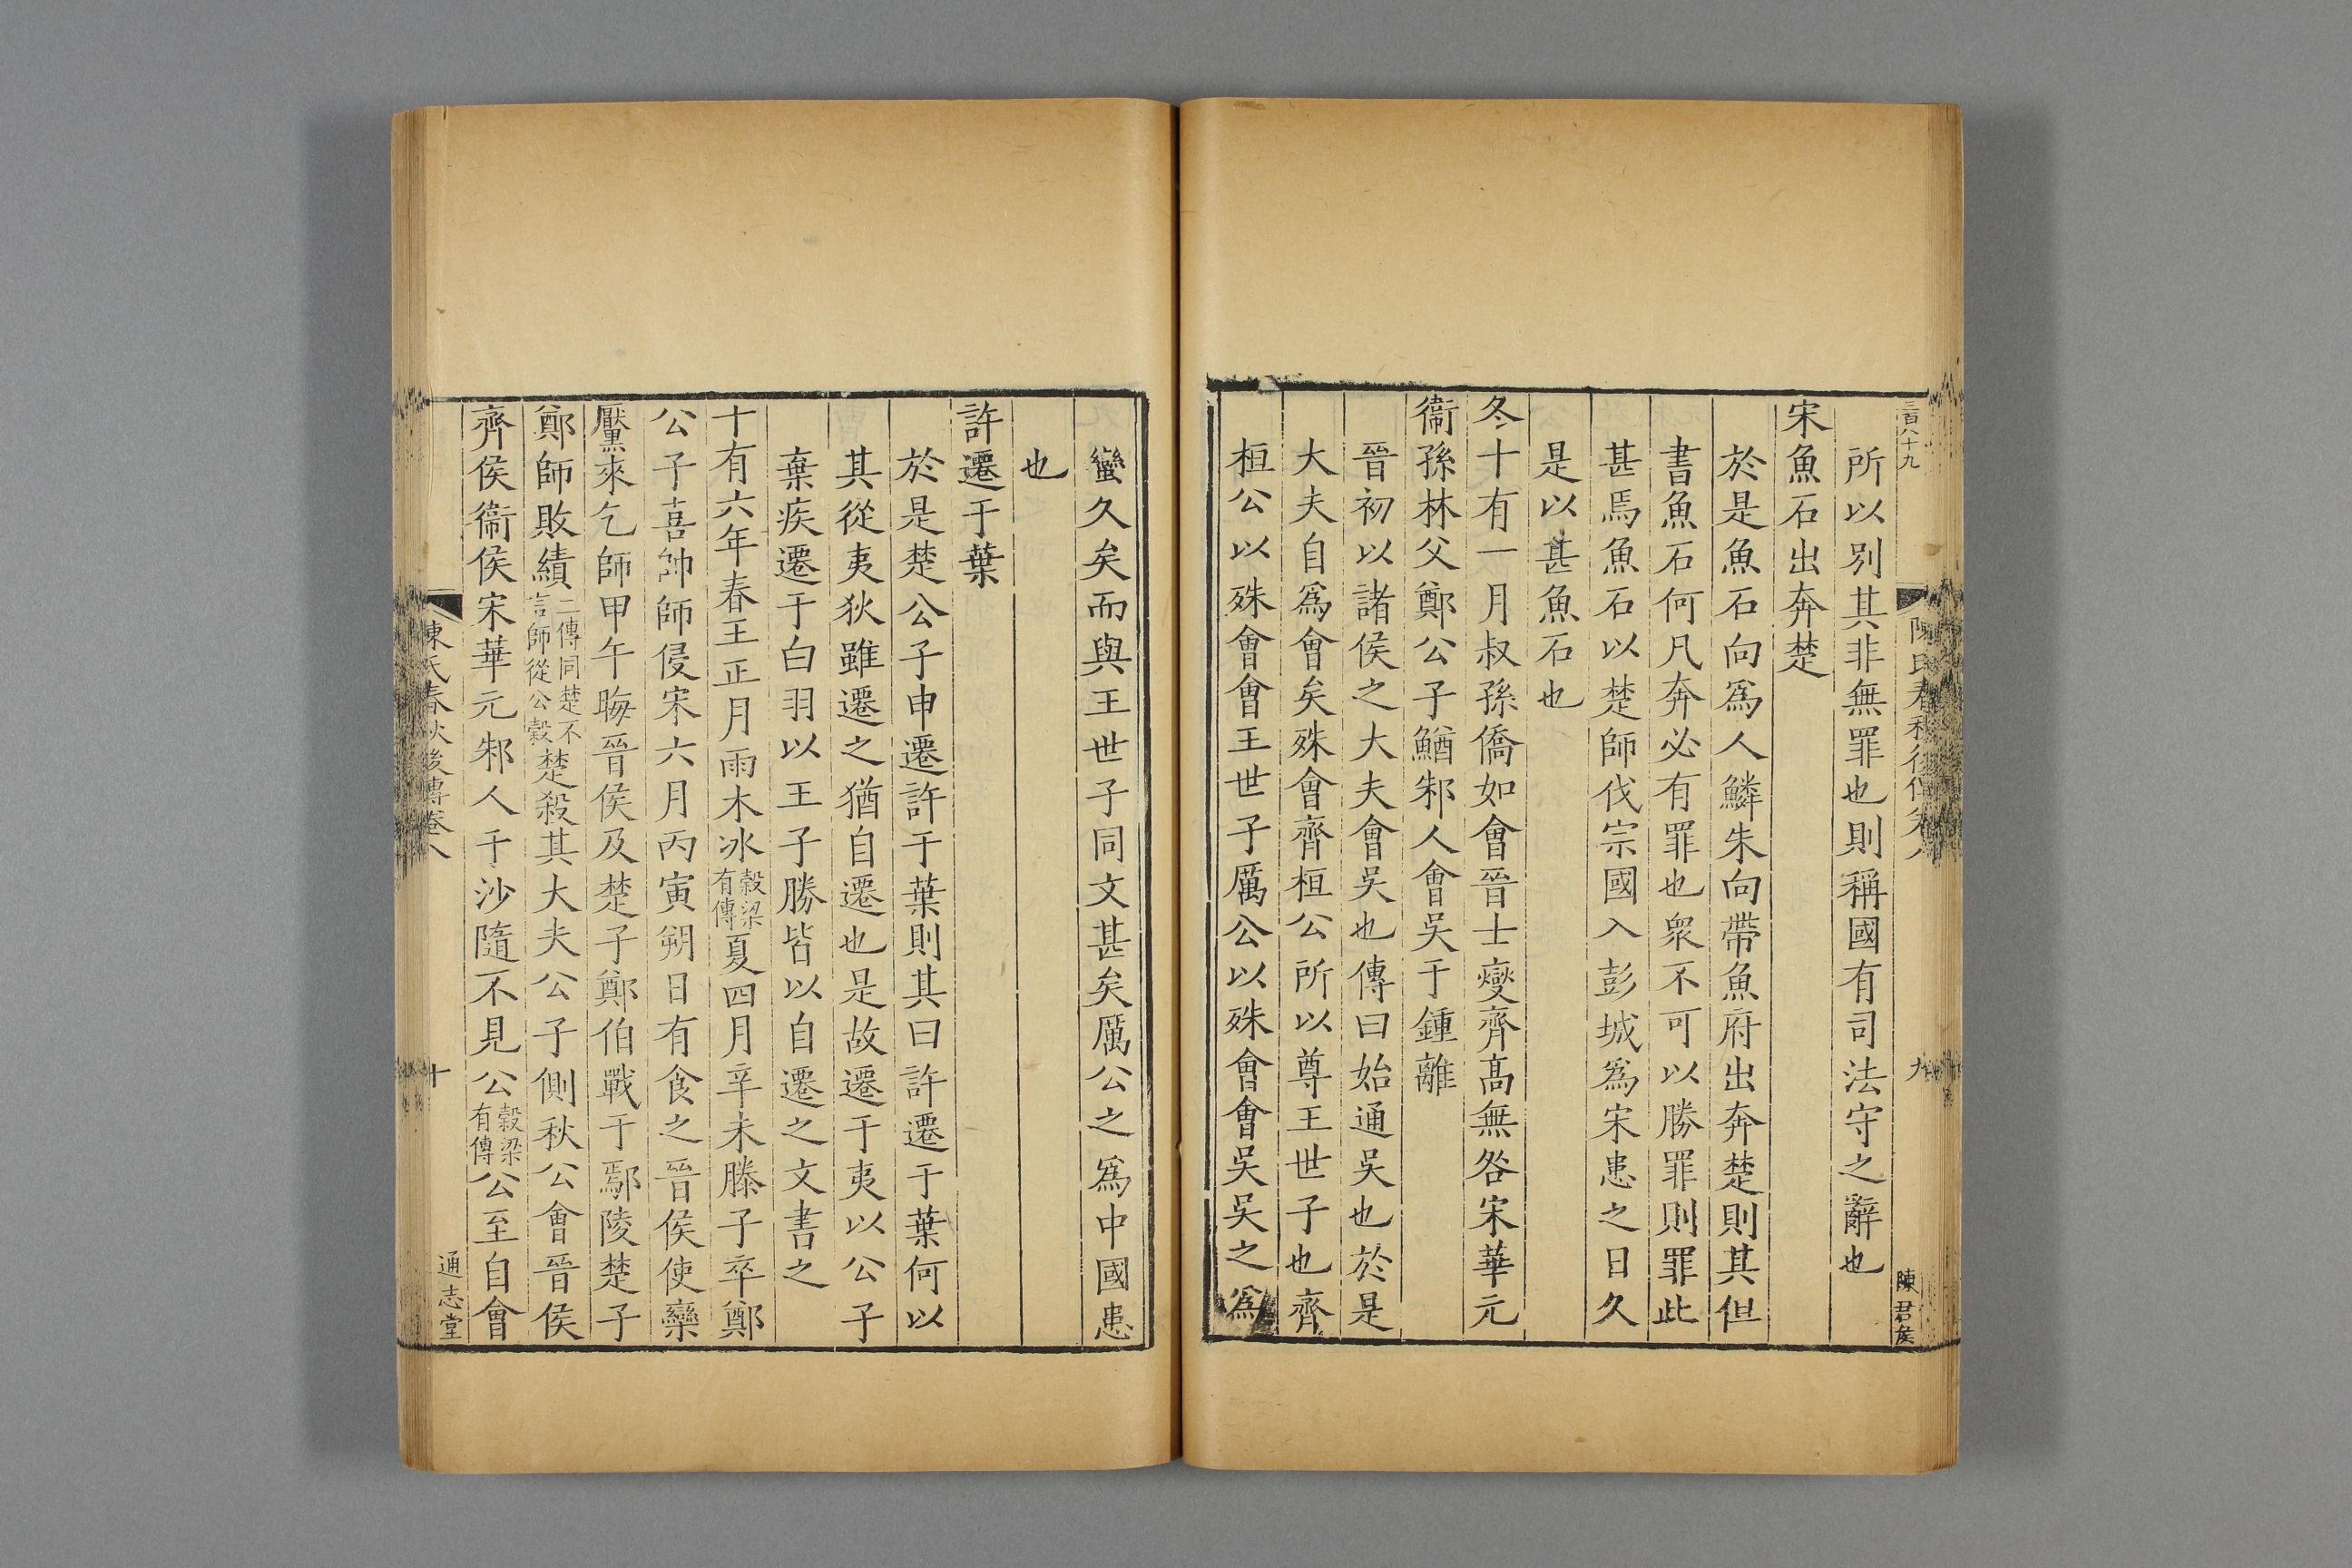 三百八十九
陳氏春秋後傳卷八
九
陳君矦
所以別其非無罪也則稱國有司法守之辭也
宋魚石出奔楚
於是魚石向爲人鱗朱向帶魚府出奔楚則其但
書魚石何凡奔必有罪也衆不可以勝罪則罪此
甚焉魚石以楚師伐宗國入彭城爲宋患之日久
是以甚魚石也
冬十有一月叔孫僑如會晉士燮齊高無咎宋華元
衞孫林父鄭公子鰌邾人會吳于鍾離
晉初以諸侯之大夫會吳也傳曰始通吳也於是
大夫自爲會矣殊會齊桓公所以尊王世子也齊
桓公以殊會會王世子厲公以殊會會吳吳之爲
蠻久矣而與王世子同文甚矣厲公之爲中國患
也
許遷于葉
於是楚公子申遷許于葉則其曰許遷于葉何以
其從夷狄雖遷之猶自遷也是故遷于夷以公子
棄疾遷于白羽以王子勝皆以自遷之文書之
十有六年春王正月雨木冰穀梁有傳夏四月辛未滕子卒鄭
公子喜帥師侵宋六月丙寅朔日有食之晉侯使欒
黶來乞師甲午晦晉侯及楚子鄭伯戰于鄢陵楚子
鄭師敗績二傳同楚不言師從公穀楚殺其大夫公子側秋公會晉侯
齊侯衞侯宋華元邾人于沙隨不見公穀梁有傳公至自會
陳氏春秋後傳卷八
十
通志堂